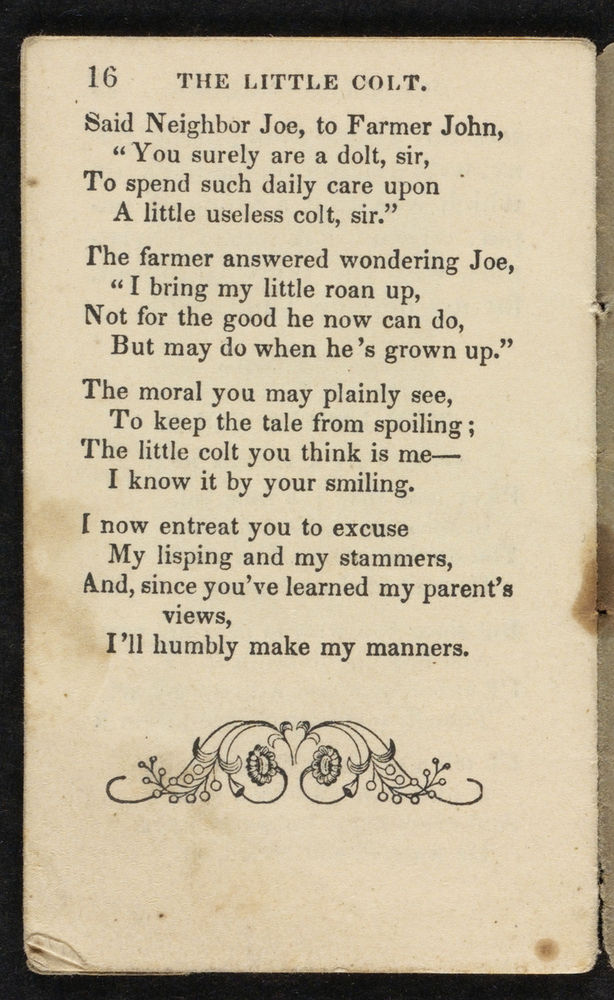 16 THE LITTLE COLT.
Said Neighbor Joe, to Farmer John,
“You surely are a dolt, sir,
To spend such daily care upon
A little useless colt, sir.”
The farmer answered wondering Joe,
“I bring my little roan up,
Not for the good he now can do,
But may do when he's grown up.”
The moral you may plainly see,
To keep the tale from spoiling;
The little colt you think is me—
I know it by your smiling.
I now entreat you to excuse
My lisping and my stammers,
And, since you've learned my parent's
views,
I'll humbly make my manners.